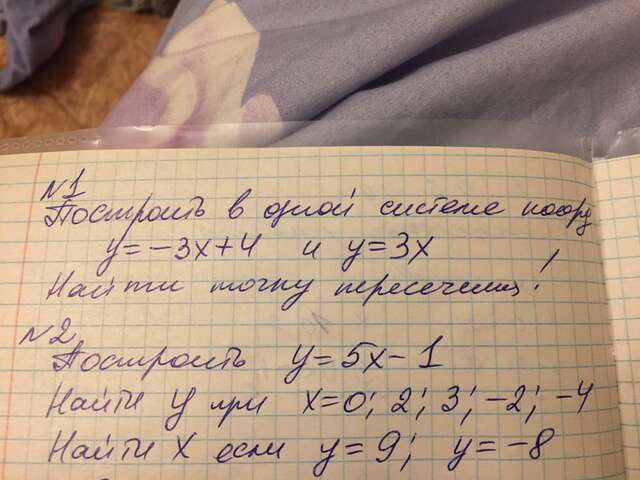 №1
Построить в одной системе коорд
y=-3x+4 и y=3x
Найти точку пересечения!
№2
Построить y=5x-1
Найти y при x=0; 2; 3; -2; -4
Найти x если y=9; y=-8